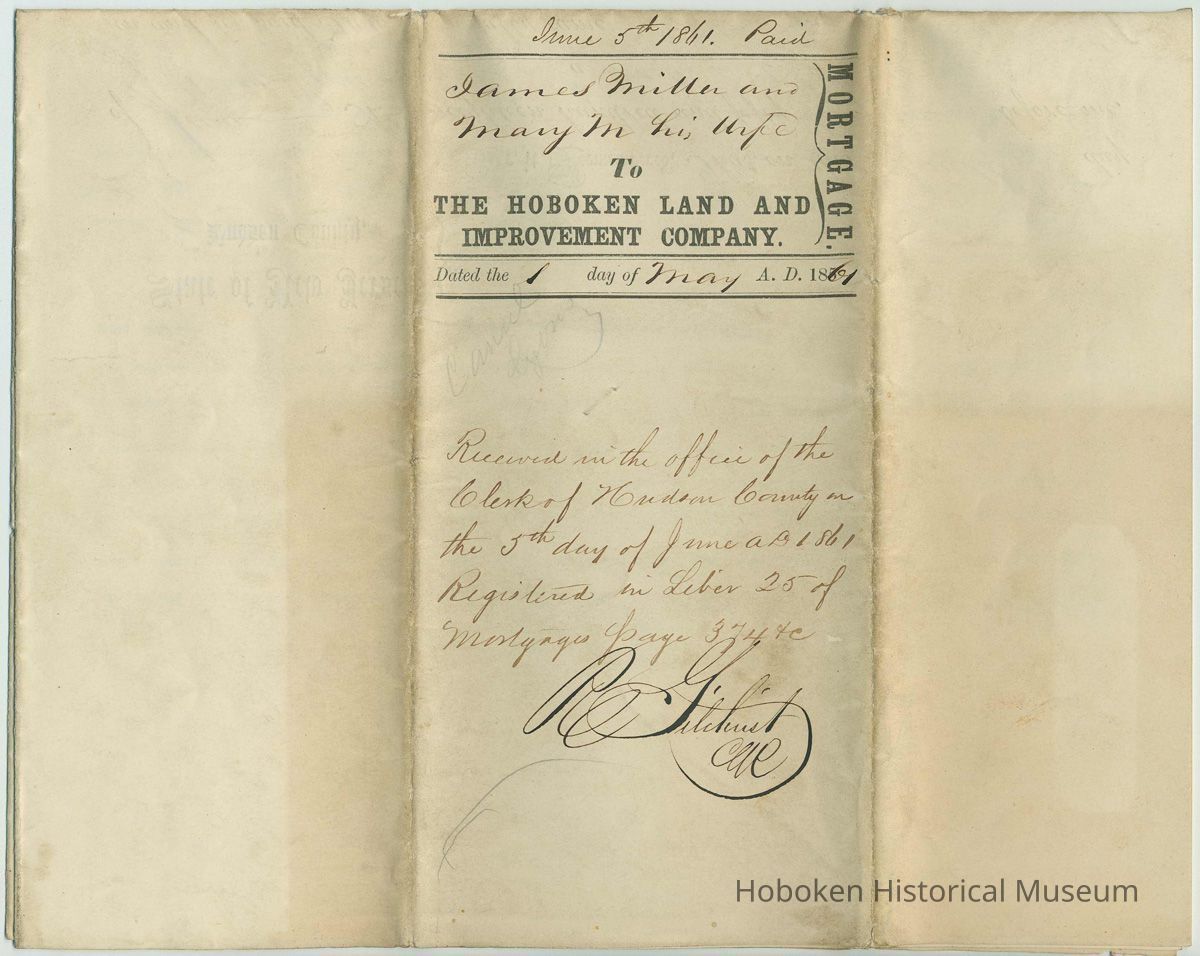 June 5th 1861. Paid
James Miller and
Mary M his Wife
To
THE HOBOKEN LAND AND
IMPROVEMENT COMPANY.
MORTGAGE.
Dated the 1 day of May A. D. 1861
Received in the office of the
Clerk of Hudson County on
the 5th day of June AD 1861
Registered in Liber 25 of
Mortgages page 374 &c
R Gilchrist
Clk
Hoboken Historical Museum